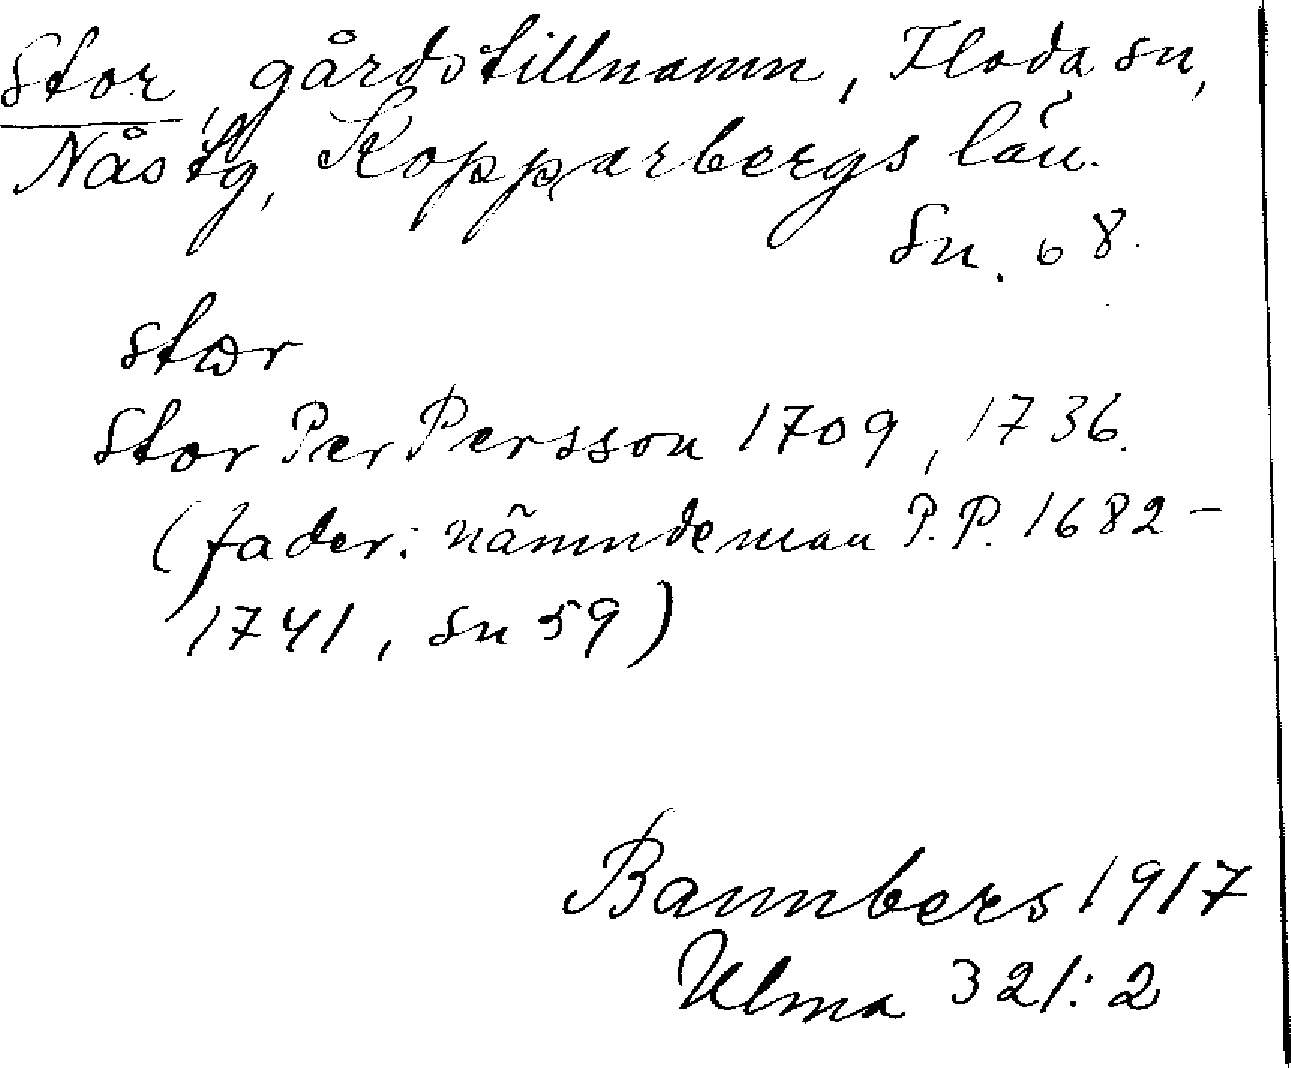 Stor, gårdstillnamn, Floda sn,
Nås tg, Kopparbergs län.
Sn. 68.
stor
Stor Per Persson 1709, 1736.
(fader: nämndeman P.P. 1682-
1741, sn 59)
Bannbers 1917
Ulma 321:2